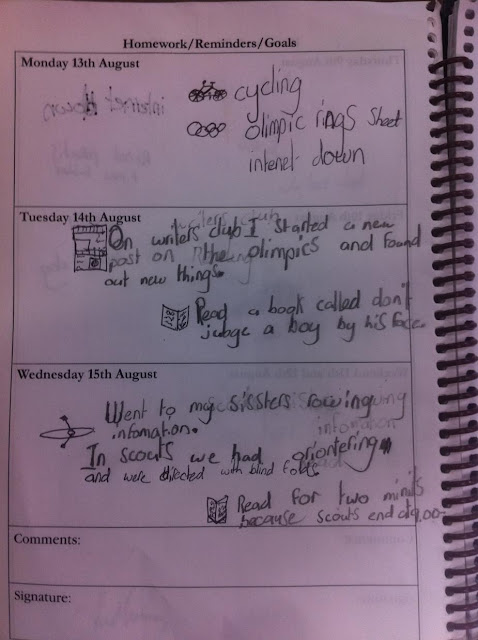 Homework/Reminders/Goals
Monday 13th August
cycling
olimpic rings sheet
intenet down
Tuesday 14th August
On writers club I started a new
post on the olimpics and found
out new things.
Read a book called don't
judge a boy by his face
Wednesday 15th August
Went to my sissters rowing
infomation.
In scouts we had oriontering
and were directed with blind folds
Read for two minits
because scouts end at 9.00
Comments:
Signature: